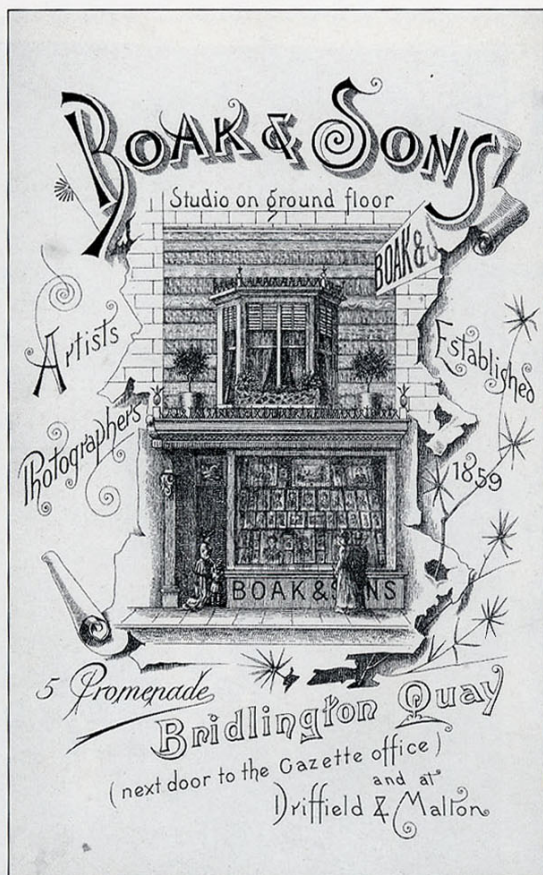 BOAK & SONS
Studio on ground floor
BOAK & S
Artists
Photographers
Established
1859
BOAK & S NS
5 Promenade
Bridlington Quay
(next door to the Gazette office)
and at
Driffield & Malton